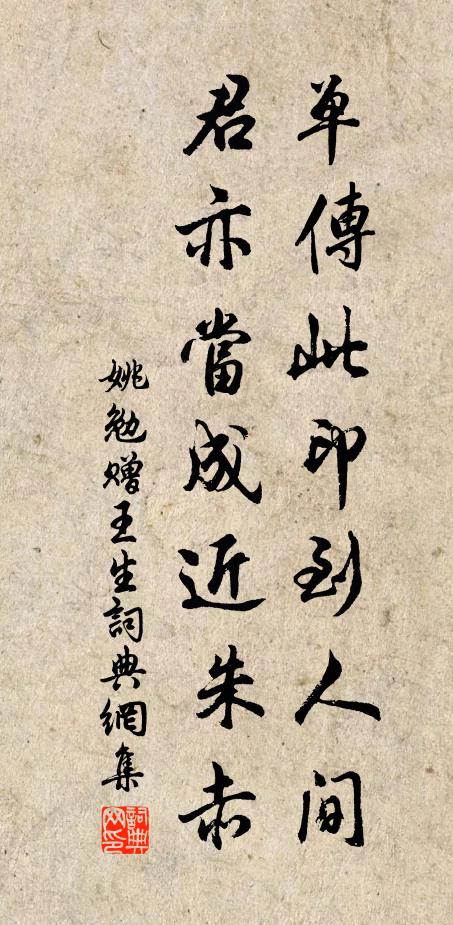 单傳此印到人间
君亦當成近朱赤
姚勉赠王生詞典網集
詞典网印